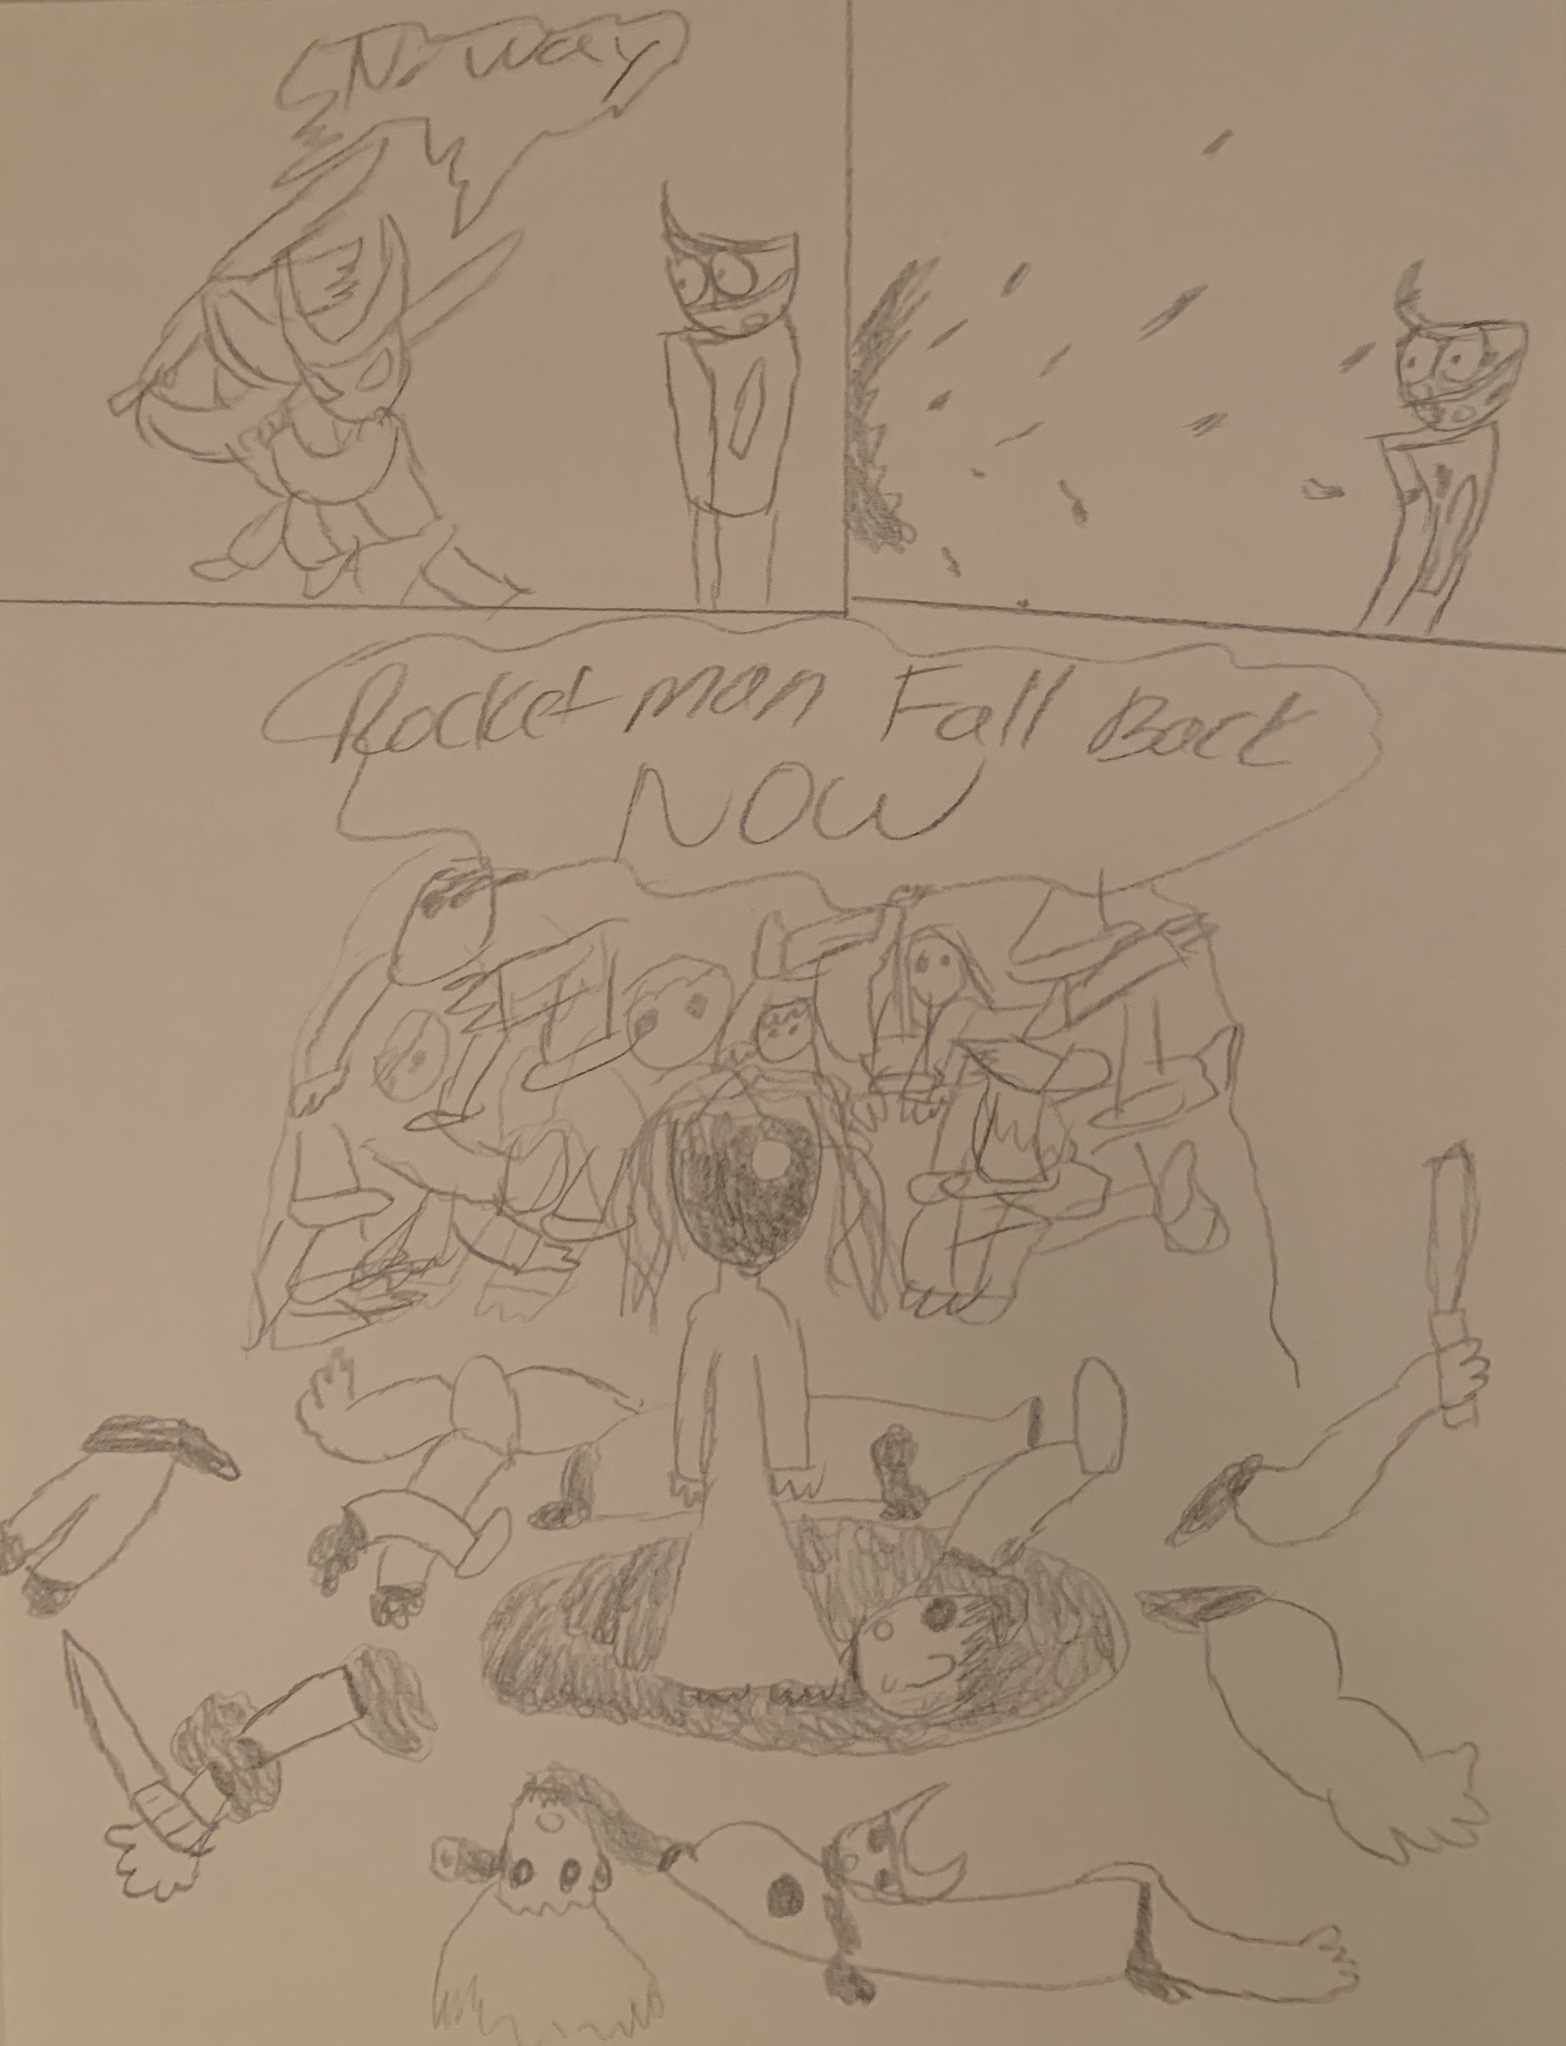 No way
Rocket man Fall Back
NOW